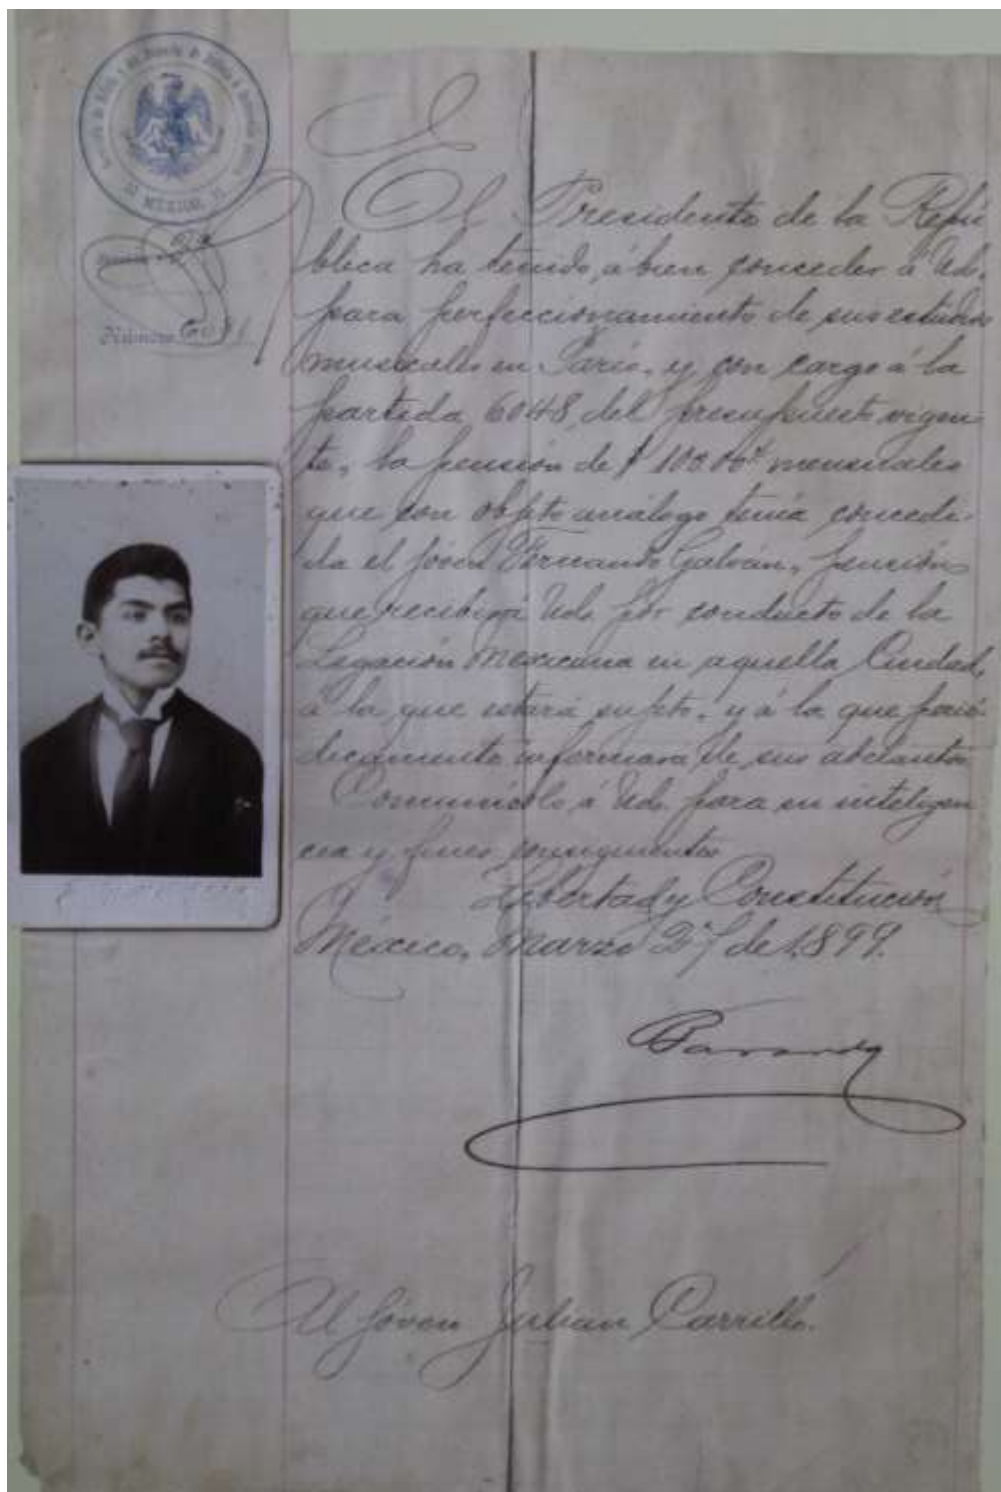 MEXICO
Número 6051
El Presidente de la Repú
blica ha tenido, á bien conceder á Ud.
para perfeccionamiento de sus estudios
musicales en Paris, y con cargo á la
partida 6048 del presupuesto vigen
te, la pensión de $ mensuales
que con objeto análogo tenía concedi
da el jóven Fernando Galván, pensión
que recibirá Ud. por conducto de la
Legación Mexicana en aquella Ciudad,
á la que estará sujeto, y á la que perió
dicamente informará de sus adelantos.
Comunícolo á Ud. para su inteligen
cia y fines consiguientes.
Libertad y Constitución
México, Marzo 27 de 1899.
Baranda
Al jóven Julian Carrillo.